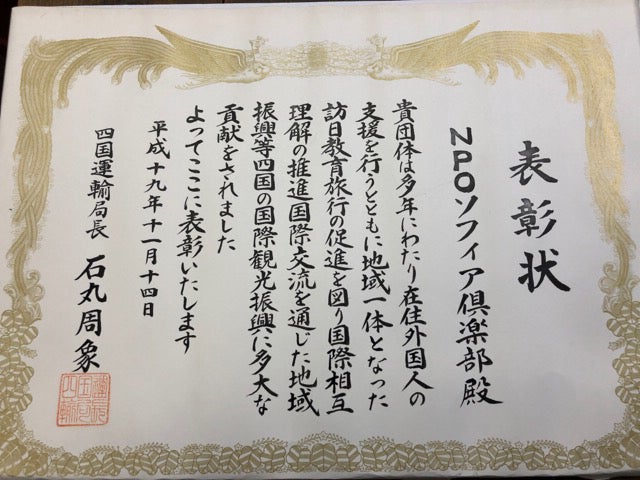 表彰状
NPOソフィア倶楽部殿
貴団体は多年にわたり在住外国人の
支援を行うとともに地域一体となった
訪日教育旅行の促進を図り国際相互
理解の推進国際交流を通じた地域
振興等四国の国際観光振興に多大な
貢献をされました
よってここに表彰いたします
平成十九年十一月十四日
四国運輸局長 石丸周象